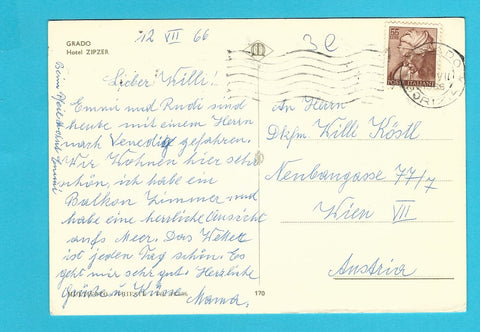 GRADO
Hotel ZIPZER
12 VII 66
Lieber Willi!
Emmi und Rudi sind
heute mit einem Herrn
nach Venedig gefahren.
Wir Wohnen hier sehr
schön, ich habe ein
Balkon Zimmer und
habe eine herrliche Aussicht
aufs Meer. Das Wetter
ist jeden Tag schön. Es
geht mir sehr gut. Herzliche
Grüße u. Küsse Mama.
Beim Pfeil wohnt Emmi
170
3C
55
POSTE ITALIANE
An Herrn
Dkfm. Willi Köstl
Neubaugasse 77/7
Wien VII
Austria